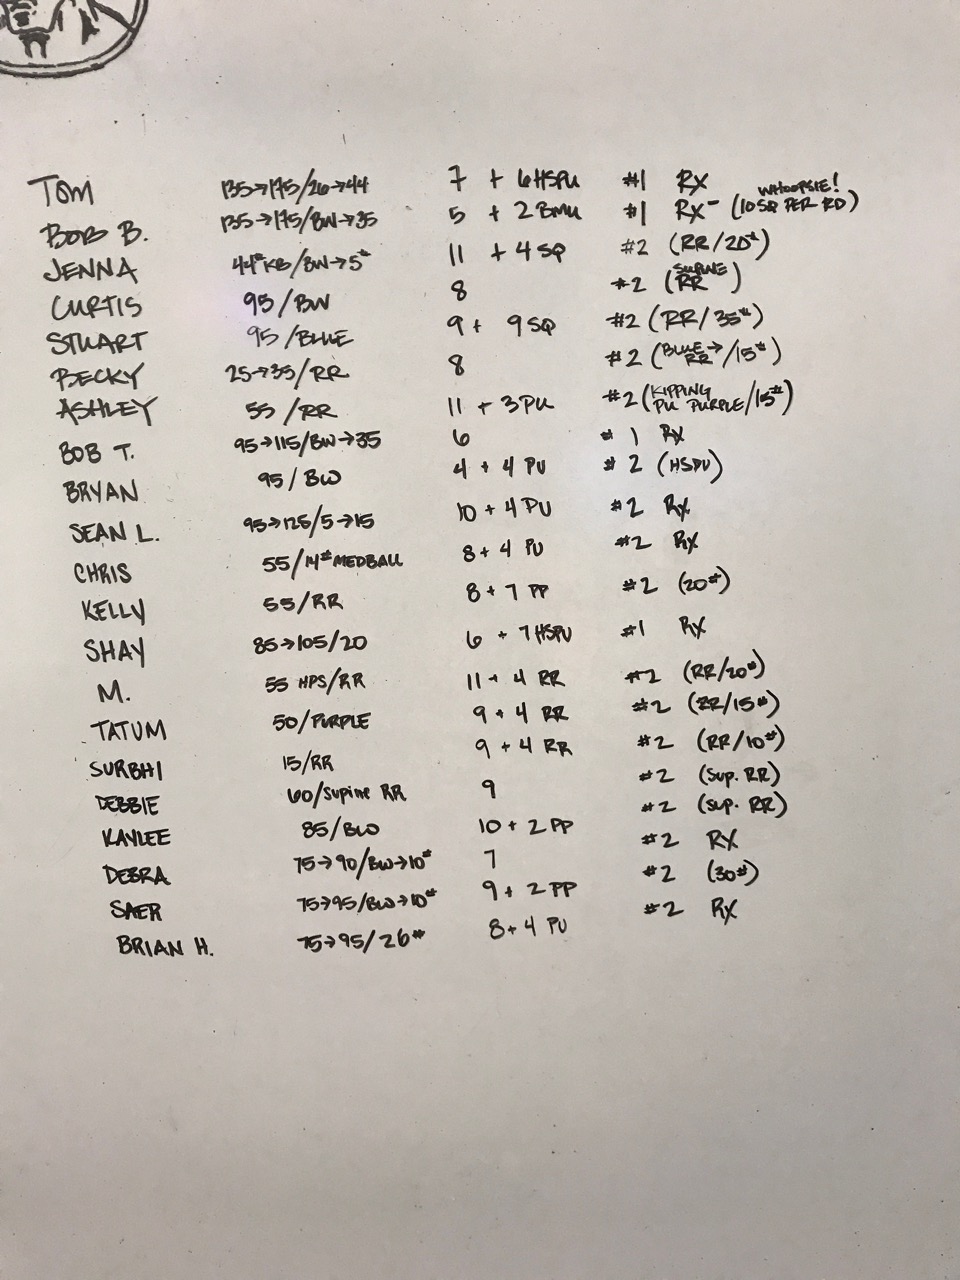 TOM 135→175/26→44 7 + 6 HSPU #1 RX
BOB B. 135→175/BW→35 5 + 2 BMU #1 RX- (10 SQ PER RD) WHOOPSIE!
JENNA 44# KB/BW→5# 11 + 4 SQ #2 (RR/20#)
CURTIS 95/BW 8 #2 (SUPINE RR)
STUART 95/BLUE 9 + 9 SQ #2 (RR/35#)
BECKY 25→35/RR 8 #2 (BLUE→RR/15#)
ASHLEY 55/RR 11 + 3 PU #2 (KIPPING PU PURPLE/15#)
BOB T. 95→115/BW→35 6 #1 RX
BRYAN 95/BW 4 + 4 PU #2 (HSPU)
SEAN L. 95→125/5→15 10 + 4 PU #2 RX
CHRIS 55/14# MEDBALL 8 + 4 PU #2 RX
KELLY 55/RR 8 + 7 PP #2 (20#)
SHAY 85→105/20 6 + 7 HSPU #1 RX
M. 55 HPS/RR 11 + 4 RR #2 (RR/20#)
TATUM 50/PURPLE 9 + 4 RR #2 (RR/15#)
SURBHI 15/RR 9 + 4 RR #2 (RR/10#)
DEBBIE 60/Supine RR 9 #2 (Sup. RR)
KAYLEE 85/BW 10 + 2 PP #2 (Sup. RR)
DEBRA 75→90/BW→10# 7 #2 RX
SAER 75→95/BW→10# 9 + 2 PP #2 (30#)
BRIAN H. 75→95/26# 8 + 4 PU #2 RX